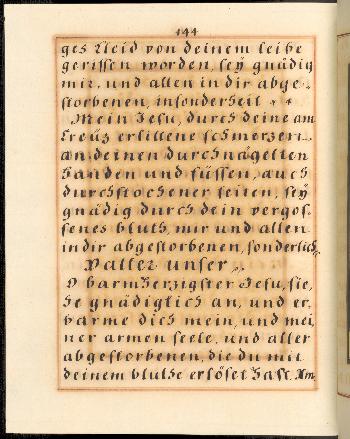 144
ges kleid von deinem leibe
gerissen worden, seÿ gnädig
mir, und allen in dir abge-
storbenen, insonderheit
Mein Jesu, durch deine am
creüz erlittene schmerzen
an deinen durchnägelten
händen und füssen, auch
durchstochener seiten, seÿ
gnädig durch dein vergos-
senes bluth, mir und allen
in dir abgestorbenen, sonderlich,
Vatter unser
O barmherzigster Jesu, sie,
he gnädiglich an, und er,
barme dich mein, und mei,
ner armen seele, und aller
abgestorbenen, die du mit
deinem bluthe erlöset hast. Am.